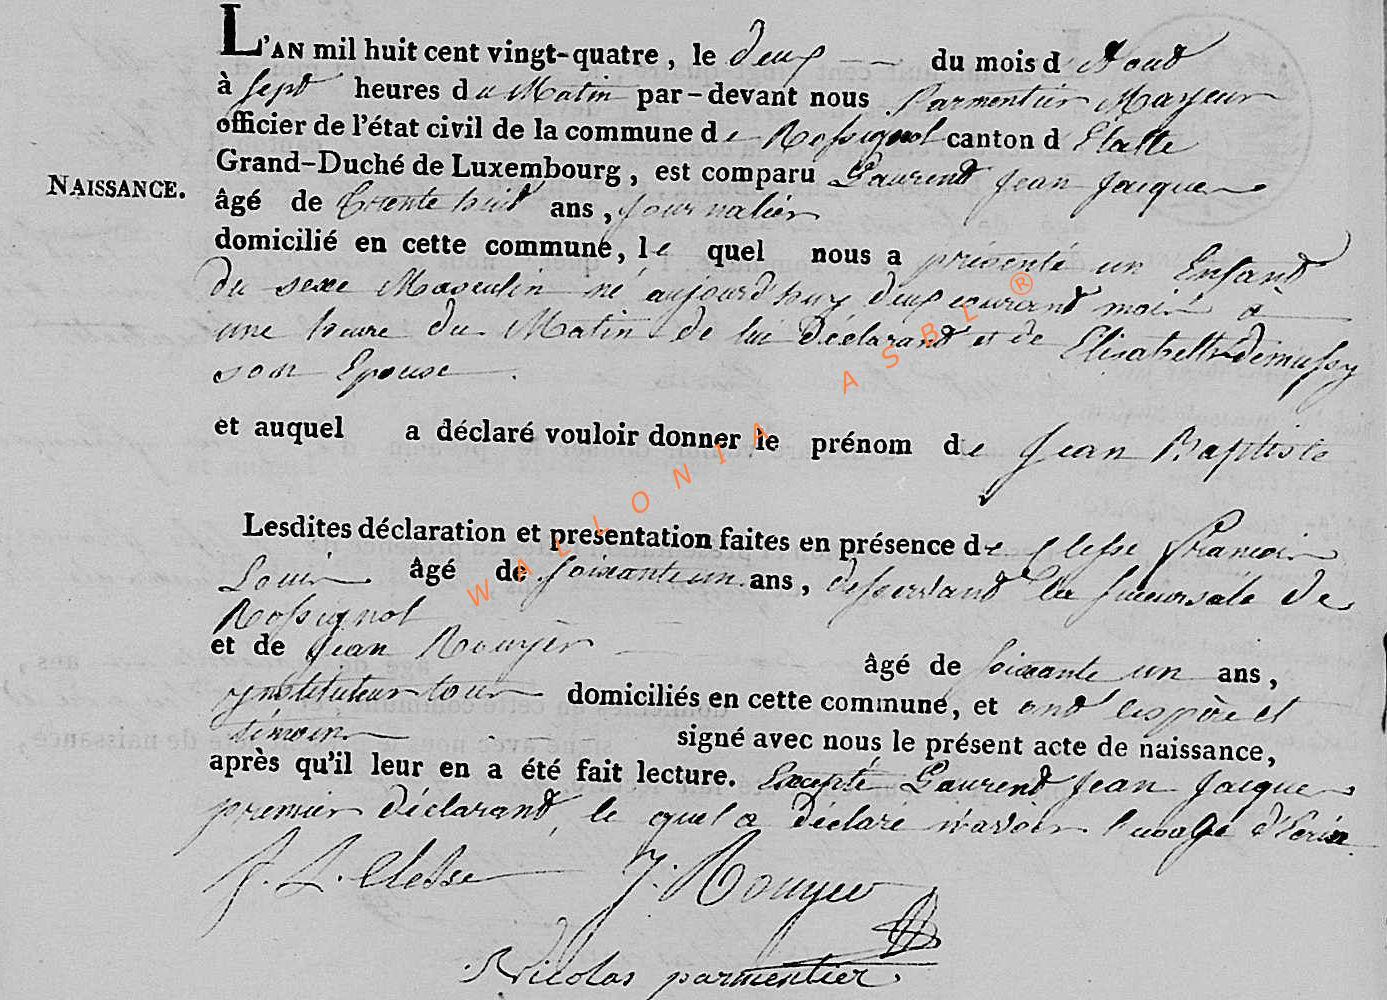 L'AN mil huit cent vingt-quatre, le deux du mois d'Aout
à sept heures du Matin par-devant nous Parmentier Mayeur
officier de l'état civil de la commune de Rossignol canton d'Etalle
Grand-Duché de Luxembourg, est comparu Laurent Jean Jacque
NAISSANCE.
âgé de trente huit ans, journalier
domicilié en cette commune, le quel nous a présenté un Enfant
du sexe Masculin né aujourd'huy deux courant mois à
une heure du Matin de lui Déclarant et de Elisabeth demussy
son Epouse.
et auquel a déclaré vouloir donner le prénom de Jean Baptiste
Lesdites déclaration et presentation faites en présence de Clesse Francois
Louis âgé de soixante un ans, desservant la succursale de
Rossignol
et de Jean Rouyer âgé de soixante un ans,
ynstituteur tous domiciliés en cette commune, et ont les père et
témoins signé avec nous le présent acte de naissance,
après qu'il leur en a été fait lecture. Excepté Laurent Jean Jacque
premier déclarant, le quel a déclaré n'avoir l'usage d'Ecrire.
F. L. Clesse J. Rouyer
Nicolas parmentier
WALLONIA ASBL ®